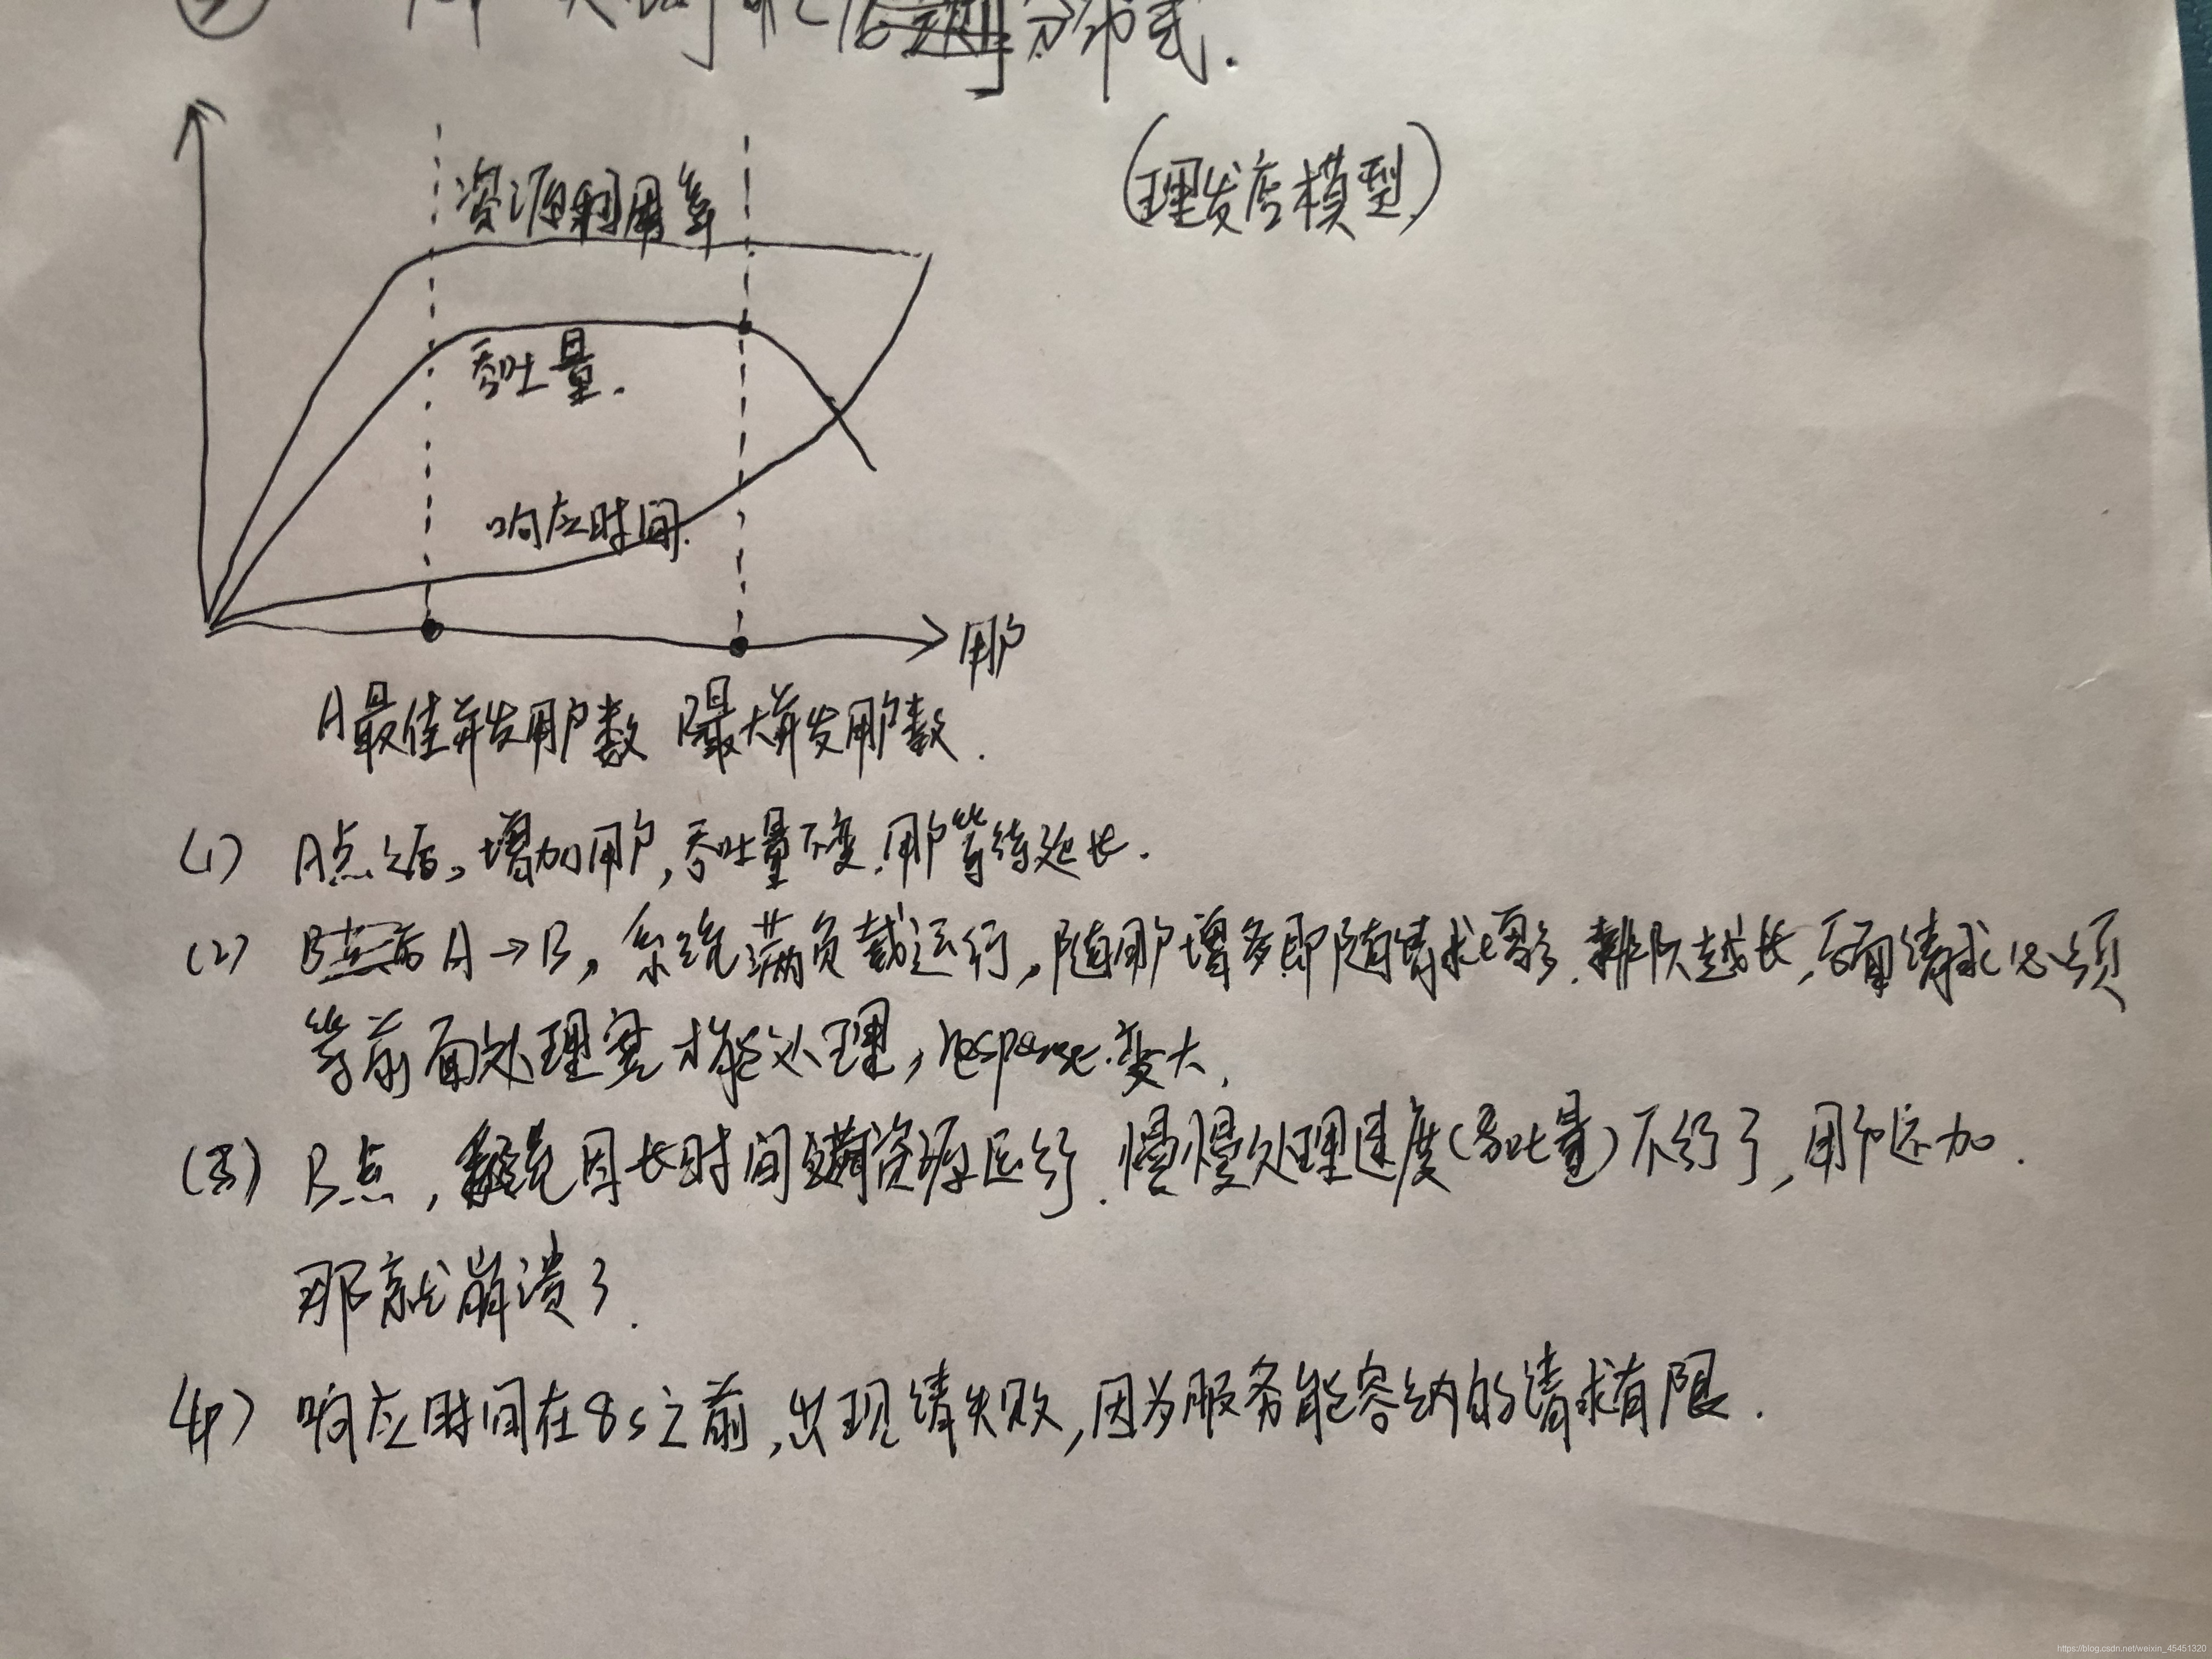 分布式.
(理发店模型)
资源利用率
吞吐量.
响应时间.
用户
A最佳并发用户数 B最大并发用户数.
(1) A点之后,增加用户,吞吐量不变.用户等待延长.
(2) A→B,系统满负载运行,随用户增多即随请求增多.排队越长,后面请求必须
等前面处理完才能处理,response.变大.
(3) B点,系统因长时间满资源运行.慢慢处理速度(吞吐量)不行了,用户还加.
那就崩溃了.
(4) 响应时间在8s之前,出现请失败,因为服务能容纳的请求有限.
https://blog.csdn.net/weixin_45451320